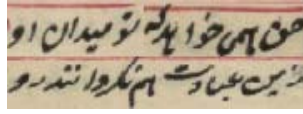 حق همی خواهد که تو میدان او
زین عبادت هم نگردانند رو